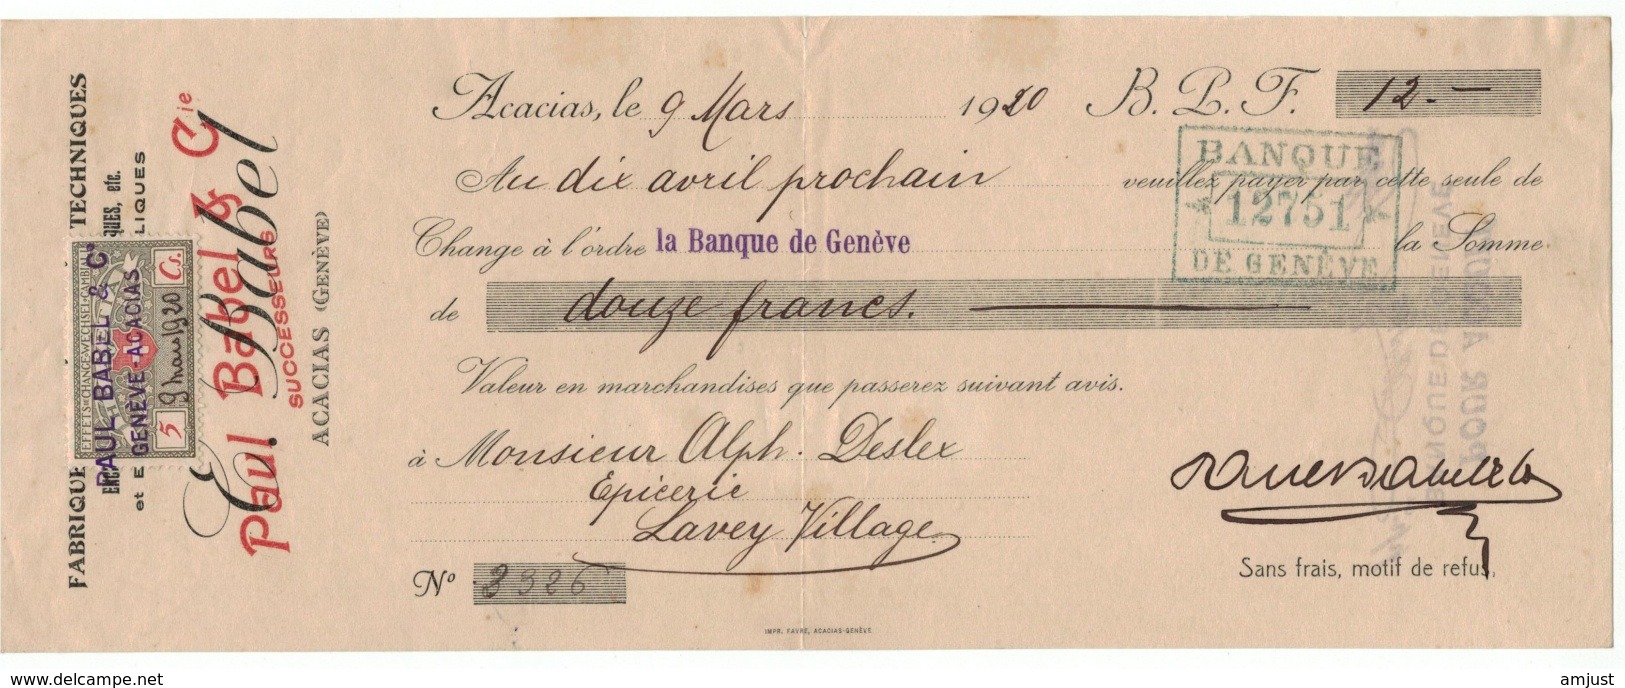 FABRIQUE TECHNIQUES
ques, etc.
et E LIQUES
E. Babel
Paul Babel & Cie
SUCCESSEURS
ACACIAS (GENÈVE)
EFFETS DE CHANGE WECHSEL CAMBIALI
5 Cs.
9 mars 1920
PAUL BABEL & Cie
GENÈVE-ACACIAS
Acacias, le 9 Mars 1920 B. P. F. 12.-
Au dix avril prochain veuillez payer par cette seule de
Change à l'ordre la Banque de Genève la Somme
de douze francs.
Valeur en marchandises que passerez suivant avis.
à Monsieur Alph. Deslex
Epicerie
Lavey Village
No 2326
BANQUE
12751
DE GENÈVE
Sans frais, motif de refus.
IMPR. FAVRE, ACACIAS-GENÈVE
www.delcampe.net
amjust